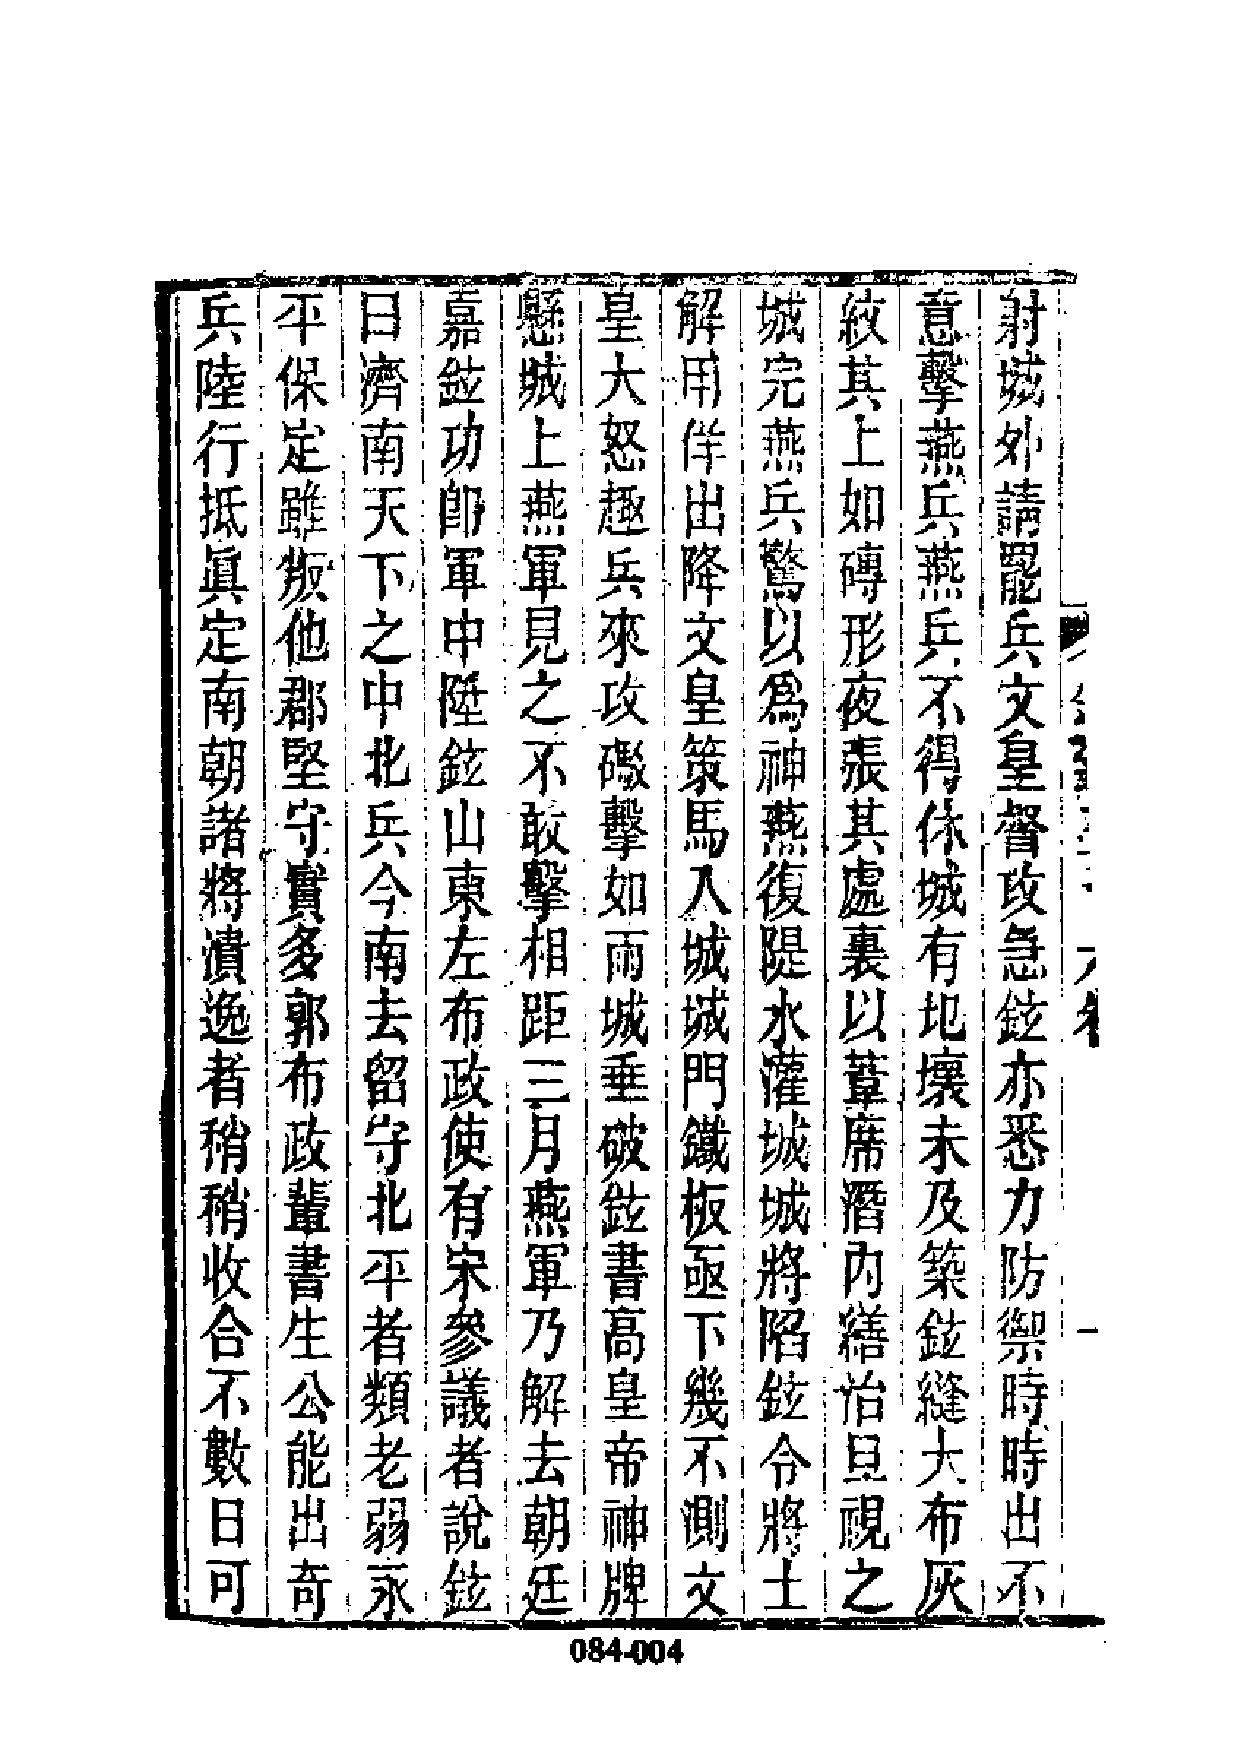 射城外請罷兵文皇督攻急鉉亦悉力防禦時時出不
意擊燕兵燕兵不得休城有圯壞未及築鉉縫大布灰
紋其上如磚形夜張其處裏以葦席潛內繕治旦視之
城完燕兵驚以爲神燕復隄水灌城城將陷鉉令將士
解用佯出降文皇策馬入城城門鐵板亟下幾不測文
皇大怒趣兵來攻礮擊如雨城垂破鉉書高皇帝神牌
懸城上燕軍見之不敢擊相距三月燕軍乃解去朝廷
嘉鉉功卽軍中陞鉉山東左布政使有宋參議者說鉉
曰濟南天下之中北兵今南去留守北平者類老弱永
平保定雖叛他郡堅守實多郭布政輩書生公能出奇
兵陸行抵眞定南朝諸將潰逸者稍稍收合不數日可
084-004